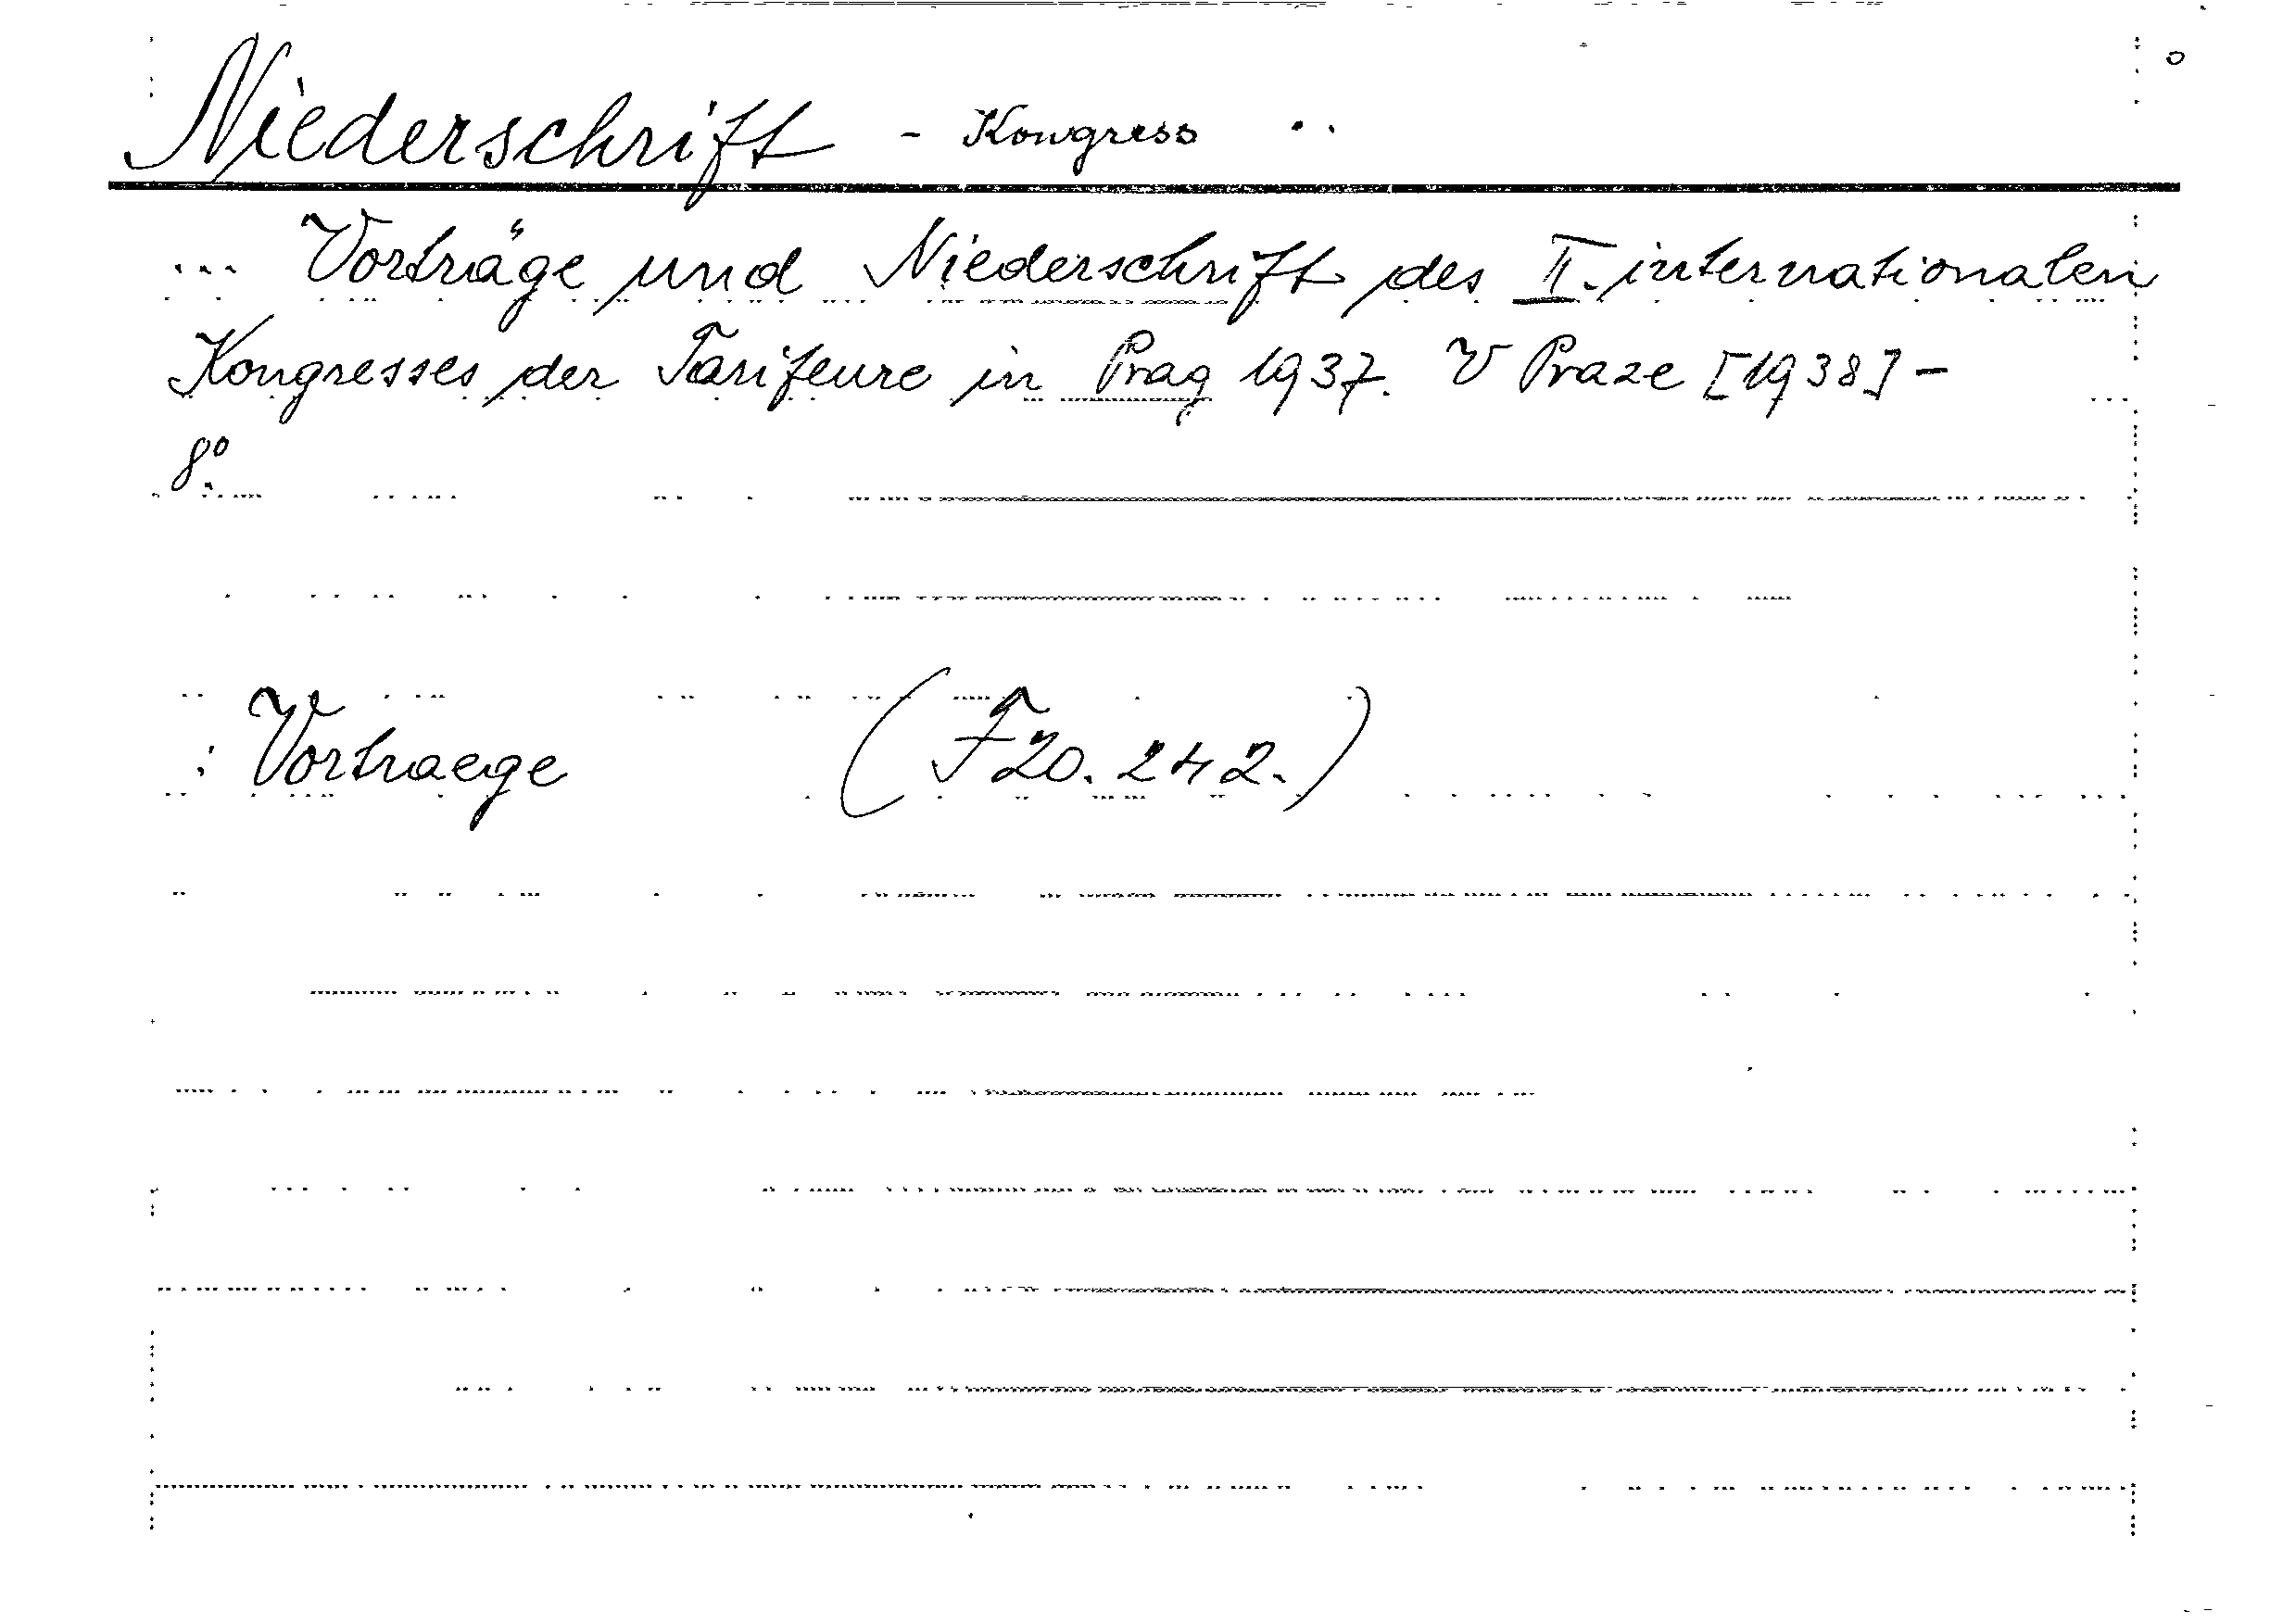 Niederschrift - Kongress ..
... Vorträge und Niederschrift des II. internationalen
Kongresses der Tarifeure in Prag 1937. V Praze [1938] -
8º.
: Vortraege (F 20.242.)